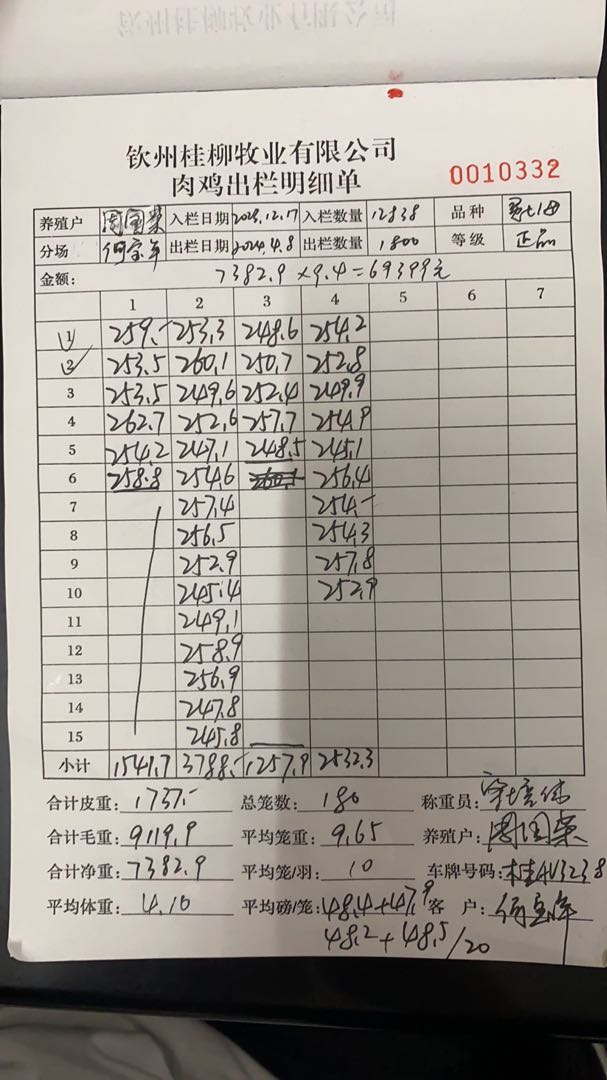 钦州桂柳牧业有限公司
肉鸡出栏明细单
0010332
养殖户 周国荣 入栏日期 2023.12.17 入栏数量 12838 品种
分场 何宝年 出栏日期 2024.4.8 出栏数量 1800 等级 正品
金额: 7382.9×9.4=69399元
1 2 3 4 5 6 7
1 259.- 253.3 248.6 254.2
2 253.5 260.1 250.7 252.8
3 253.5 249.6 252.4 249.9
4 262.7 252.6 257.7 254.9
5 254.2 247.1 248.5 245.1
6 258.8 254.6 256.4
7 257.4 254.-
8 256.5 254.3
9 252.9 257.8
10 245.4 252.9
11 249.1
12 258.9
13 256.9
14 247.8
15 245.8
小计 1541.7 3788.- 1257.9 2532.3
合计皮重: 1737.- 总笼数: 180 称重员:
合计毛重: 9119.9 平均笼重: 9.65 养殖户: 周国荣
合计净重: 7382.9 平均笼/羽: 10 车牌号码: 桂AV3238
平均体重: 4.10 平均磅/笼: 48.4+47.9 客 户:
48.2+48.5/20